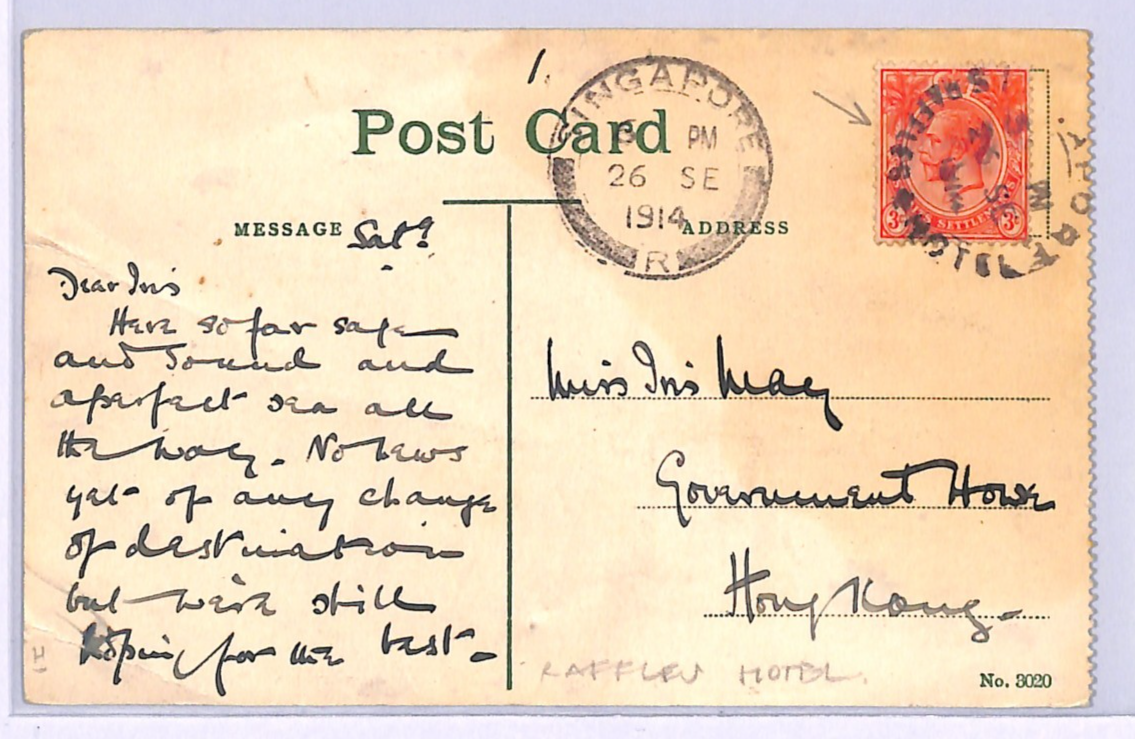 1.
Post Card
SINGAPORE
PM
26 SE
1914
R
RAFFLES HOTEL
3c S SETTLEMENTS 3c
MESSAGE
ADDRESS
Sat?
Dear Iris
Here so far safe
and sound and
a perfect sea all
the way. No news
yet of any change
of destination
but we're still
hoping for the best -
Miss Iris May
Government House
Hong Kong -
H
RAFFLES HOTEL.
No. 3020